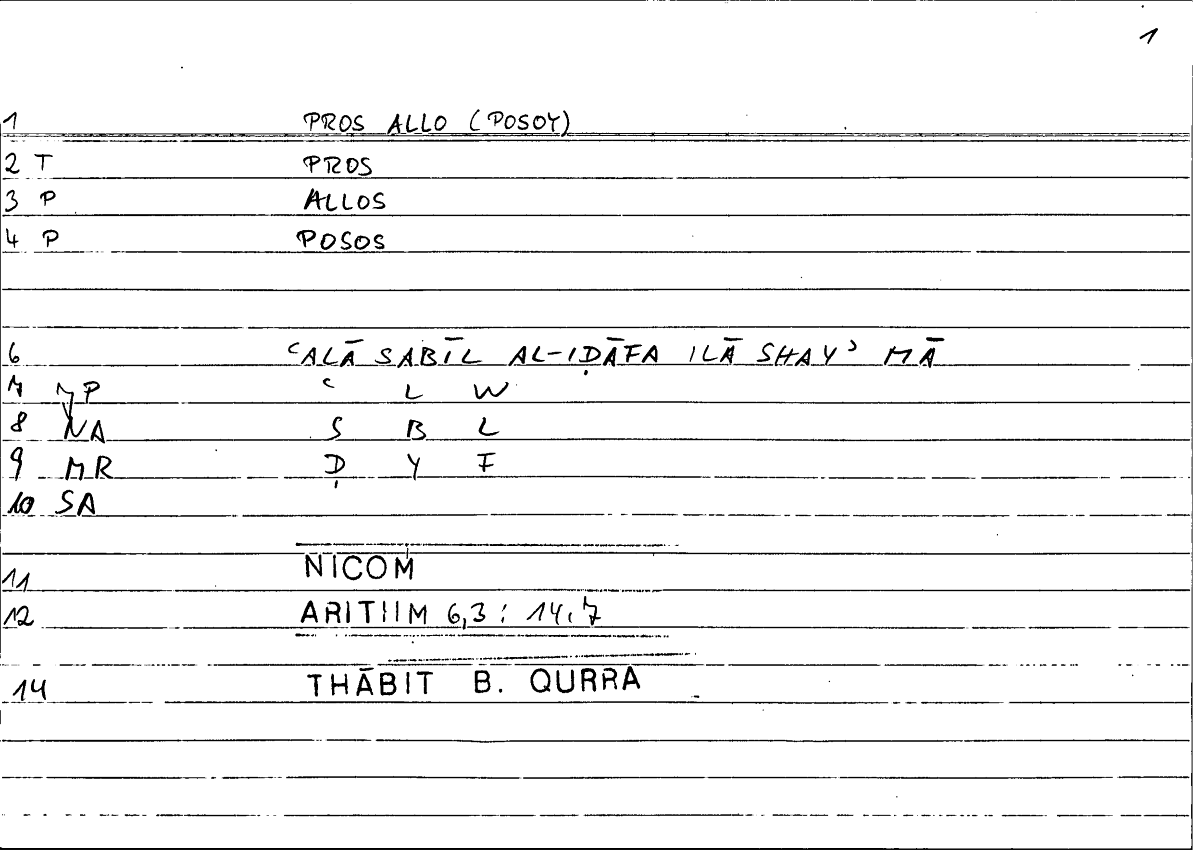 1
1 PROS ALLO (POSOY)
2 T PROS
3 P ALLOS
4 P POSOS
6 ʿALĀ SABĪL AL-IḌĀFA ILĀ SHAYʾ MĀ
7 P ʿ L W
8 NA S B L
9 MR Ḍ Y F
10 SA
11 NICOM
12 ARITHM 6,3 : 14,7
14 THĀBIT B. QURRA